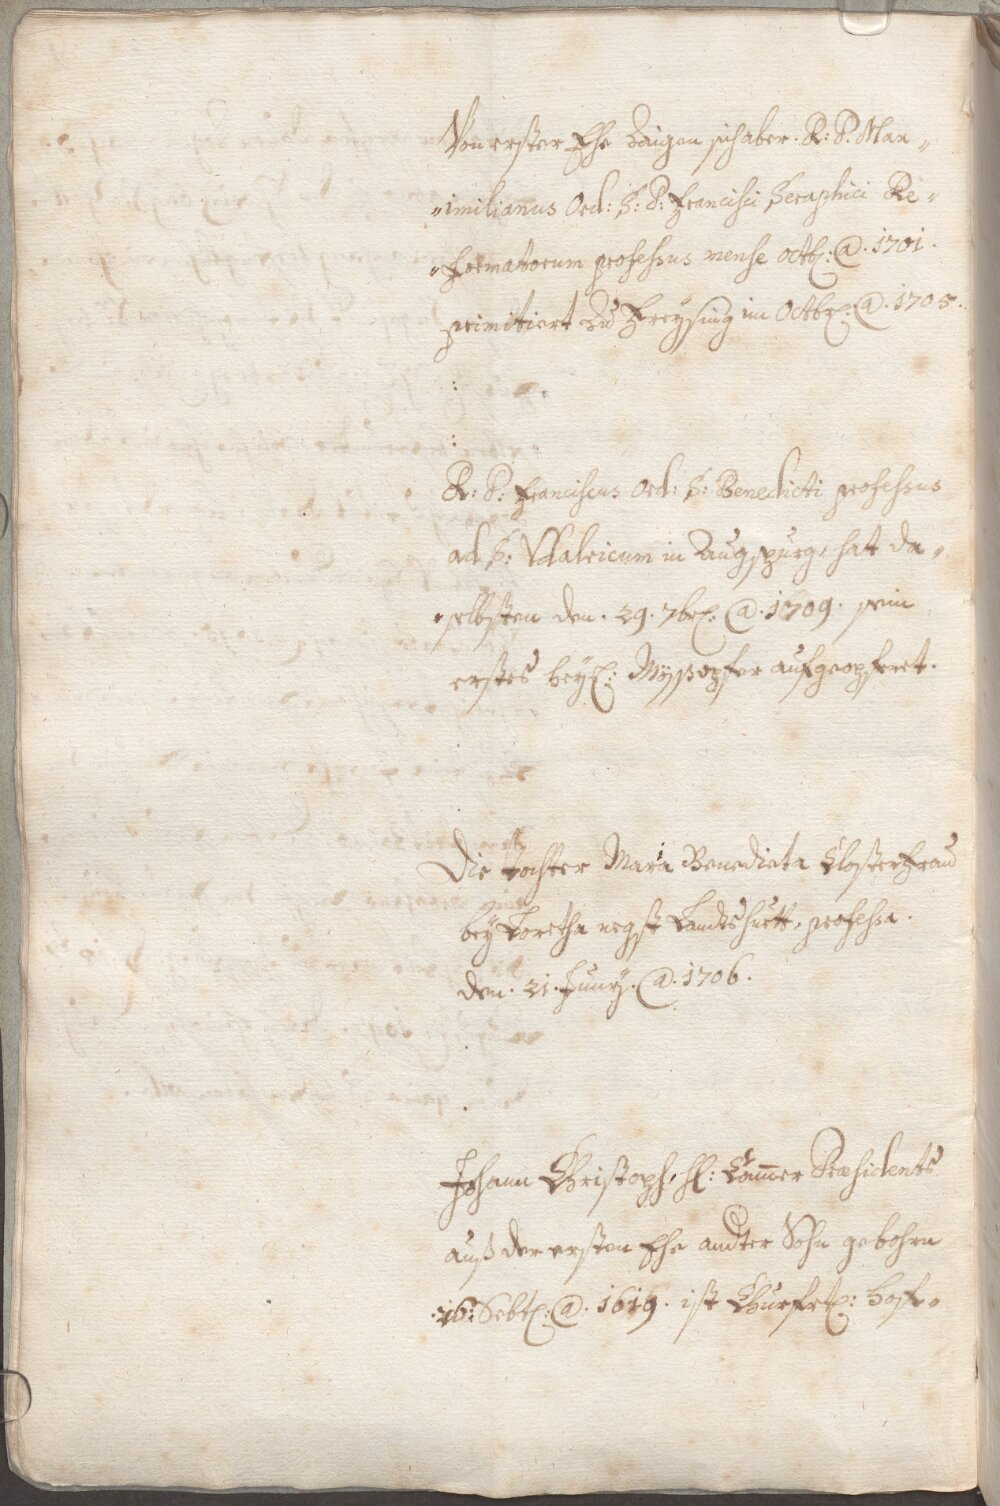 Von erster Ehe Zaigen sich aber. R: P. Max„
„imilianus Ord: S: P: Francisci Seraphici Re„
„formatorum professus mense octb: @. 1701.
primitiert zu Freÿsing im Octbr: @. 1705.
R: P: Franciscus Ord: S: Benedicti professus
ad S: Udalricum in Augspurg, hat da„
„selbsten den. 29. 7br: @. 1709. sein
erstes heÿl: Mößopfer aufgeopferet.
Die Tochter Maria Benedicta Closterfrau
beÿ Loretha negst Landtshuett, professa.
den. 21. Junÿ. @. 1706.
Johann Christoph, H: Cam̄er Præsidents
auß der ersten Ehe andter Sohn gebohrn
.16: Sebt: @. 1619. ist Churfrt: Hof„